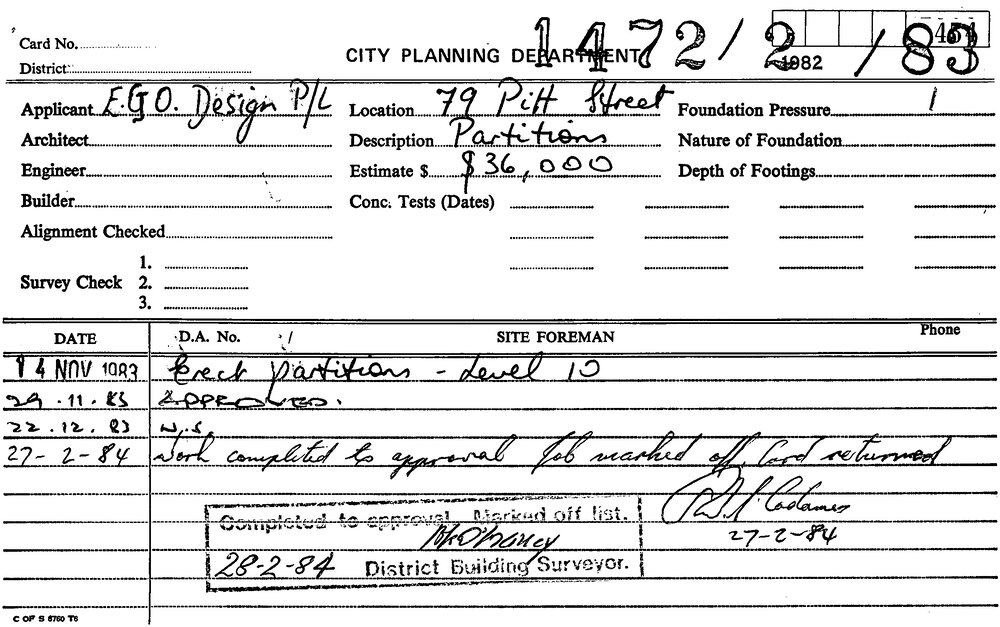 1472/2/83
454
1982
Card No.
CITY PLANNING DEPARTMENT
District
Applicant E.G.O. Design P/L
Location 79 Pitt Street
Foundation Pressure
Architect
Description Partitions
Nature of Foundation
Engineer
Estimate $ $36,000
Depth of Footings
Builder
Conc. Tests (Dates)
Alignment Checked
Survey Check
1.
2.
3.
DATE D.A. No. SITE FOREMAN Phone
14 NOV 1983 Erect partitions - Level 10
29.11.83 APPROVED.
22.12.83 W.S.
27-2-84 Work completed to approval Job marked off. Card returned
27-2-84
Completed to approval. Marked off list.
28-2-84 District Building Surveyor.
C OF S 8760 T6